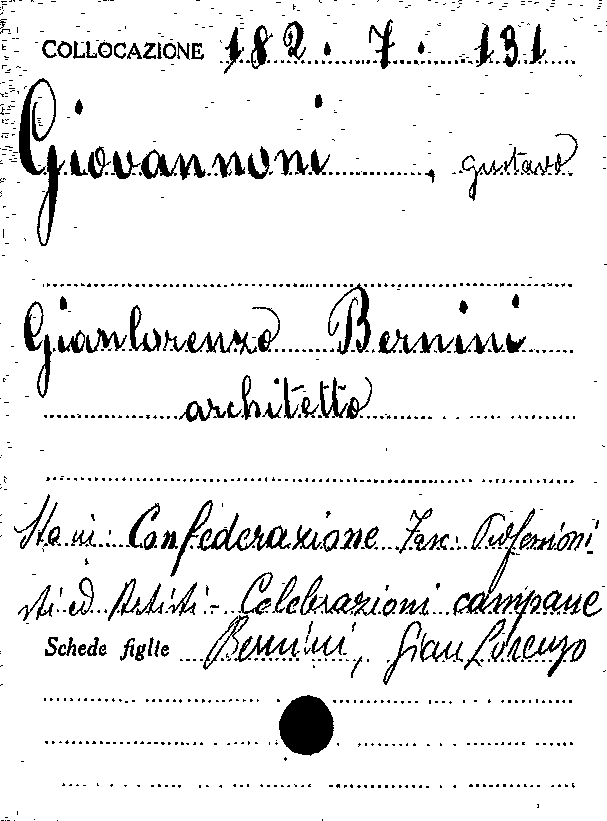 COLLOCAZIONE 182. 7. 131
Giovannoni, Gustavo
Gianlorenzo Bernini
architetto
Sta in: Confederazione Fasc. Professioni-
sti ed Artisti - Celebrazioni campane
Schede figlie Bernini, Gian Lorenzo